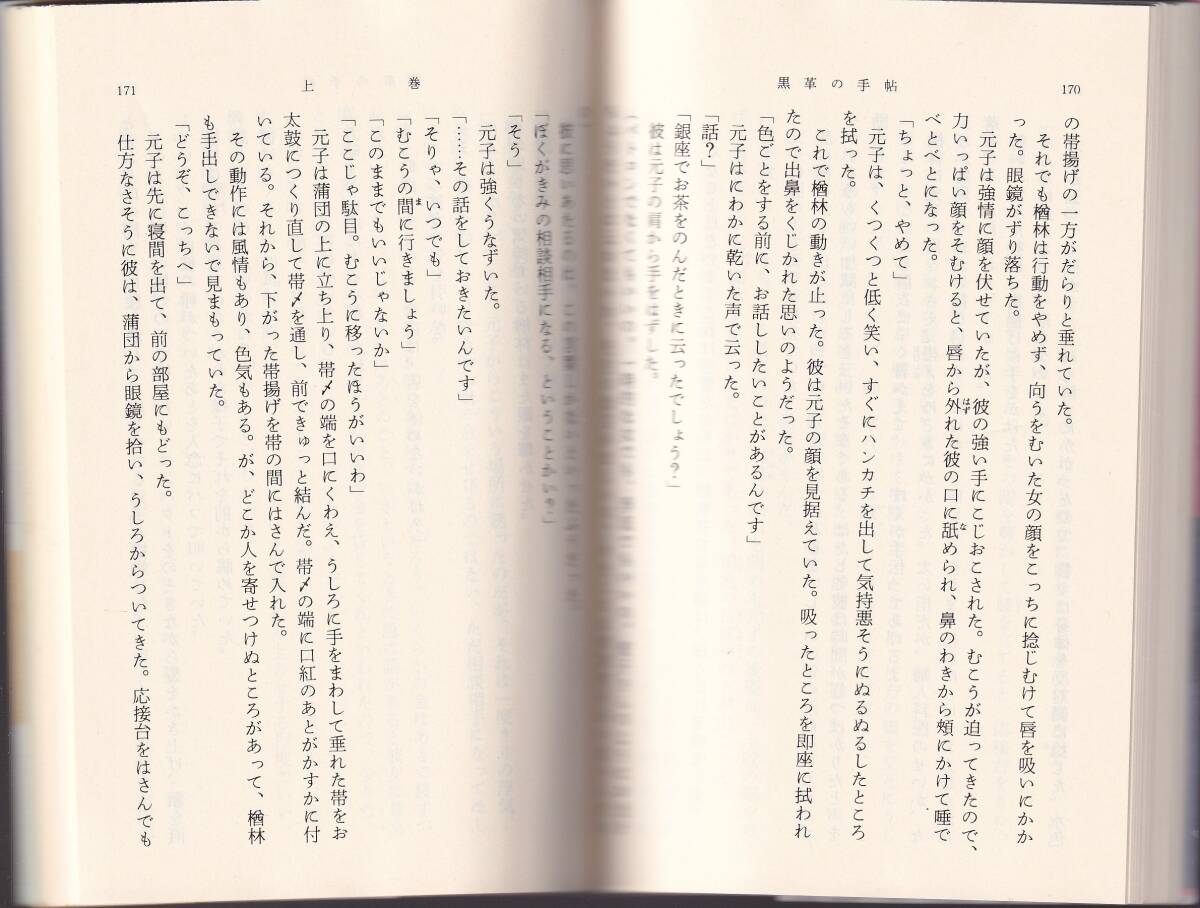 黒革の手帖
170
の帯揚げの一方がだらりと垂れていた。
それでも楢林は行動をやめず、向うをむいた女の顔をこっちに捻じむけて唇を吸いにかか
った。眼鏡がずり落ちた。
元子は強情に顔を伏せていたが、彼の強い手にこじおこされた。むこうが迫ってきたので、
力いっぱい顔をそむけると、唇から外れた彼の口に舐められ、鼻のわきから頰にかけて唾で
べとべとになった。
「ちょっと、やめて」
元子は、くつくつと低く笑い、すぐにハンカチを出して気持悪そうにぬるぬるしたところ
を拭った。
これで楢林の動きが止った。彼は元子の顔を見据えていた。吸ったところを即座に拭われ
たので出鼻をくじかれた思いのようだった。
「色ごとをする前に、お話ししたいことがあるんです」
元子はにわかに乾いた声で云った。
「話？」
「銀座でお茶をのんだときに云ったでしょう？」
彼は元子の肩から手をはずした。
上巻
171
彼に思いあたるのは、この言葉しかなかったようだった。
「ぼくがきみの相談相手になる、ということかい？」
「そう」
元子は強くうなずいた。
「……その話をしておきたいんです」
「そりゃ、いつでも」
「むこうの間に行きましょう」
「このままでもいいじゃないか」
「ここじゃ駄目。むこうに移ったほうがいいわ」
元子は蒲団の上に立ち上り、帯〆の端を口にくわえ、うしろに手をまわして垂れた帯をお
太鼓につくり直して帯〆を通し、前できゅっと結んだ。帯〆の端に口紅のあとがかすかに付
いている。それから、下がった帯揚げを帯の間にはさんで入れた。
その動作には風情もあり、色気もある。が、どこか人を寄せつけぬところがあって、楢林
も手出しできないで見まもっていた。
「どうぞ、こっちへ」
元子は先に寝間を出て、前の部屋にもどった。
仕方なさそうに彼は、蒲団から眼鏡を拾い、うしろからついてきた。応接台をはさんでも